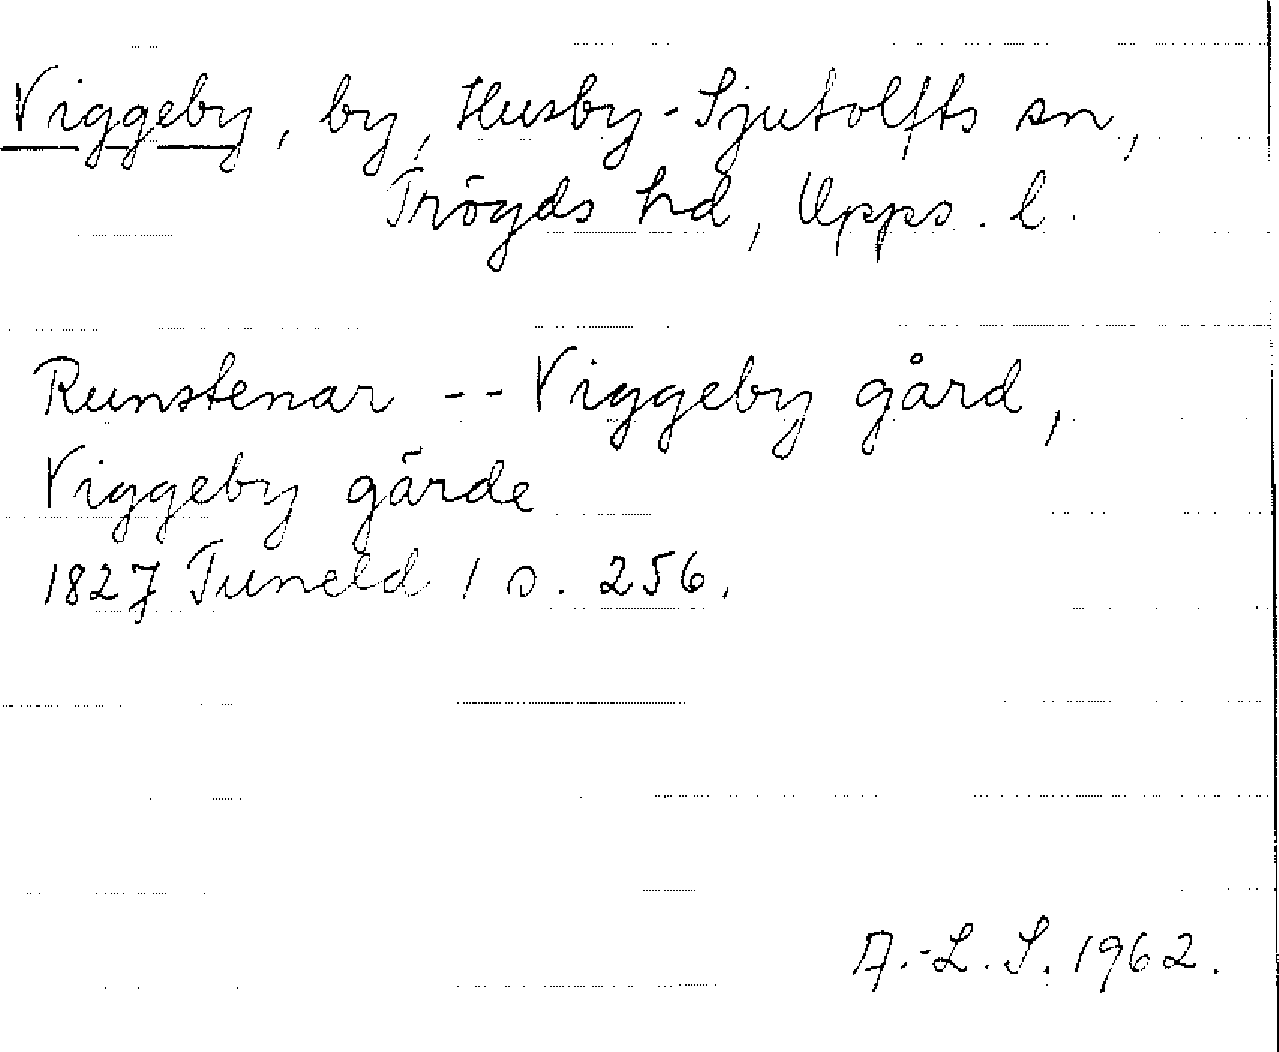 Viggeby, by, Husby-Sjutolfts sn,
Trögds hd, Upps. l.
Runstenar -- Viggeby gård,
Viggeby gärde
1827 Tuneld 1 s. 256.
A.-L. S. 1962.